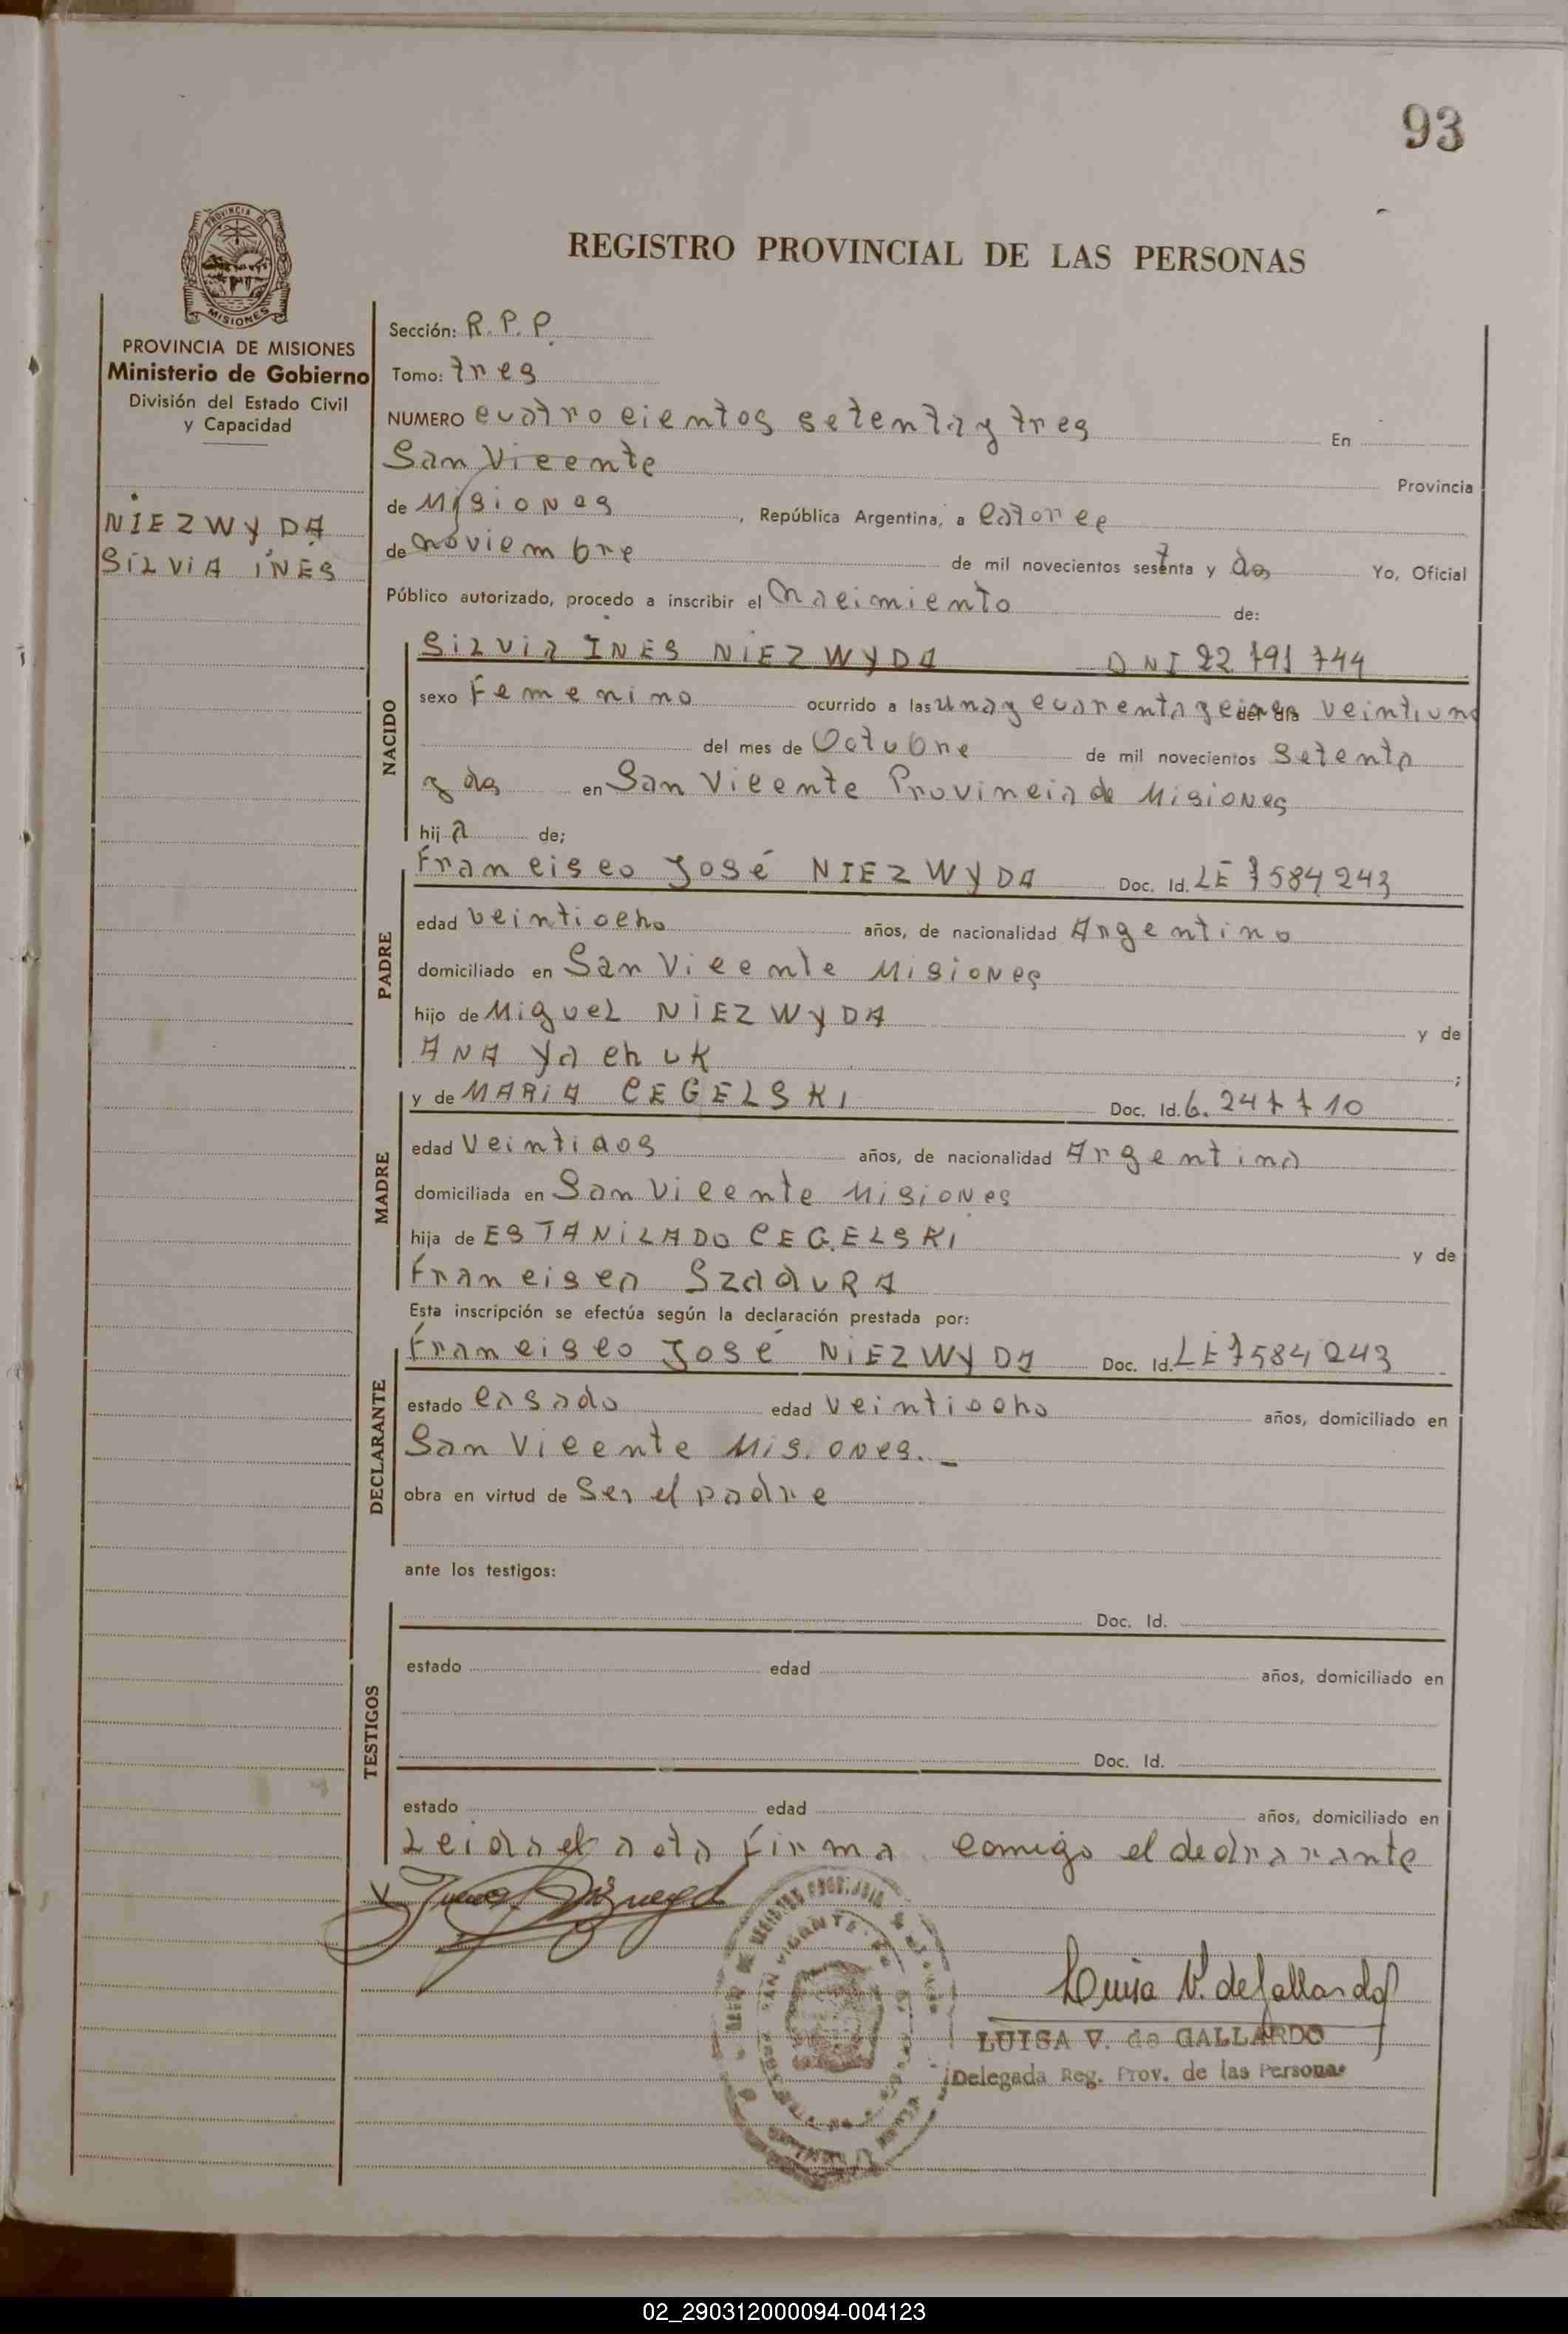 93
PROVINCIA DE
MISIONES
REGISTRO PROVINCIAL DE LAS PERSONAS
PROVINCIA DE MISIONES
Ministerio de Gobierno
División del Estado Civil
y Capacidad
NIEZWYDA
SILVIA INES
Sección: R.P.P.
Tomo: tres
NUMERO cuatrocientos setenta y tres En
San Vicente Provincia
de Misiones, República Argentina, a catorce
de noviembre de mil novecientos setenta y dos Yo, Oficial
Público autorizado, procedo a inscribir el nacimiento de:
NACIDO
Silvia INES NIEZWYDA DNI 22 791 744
sexo Femenino ocurrido a las una y cuarenta y cinco del día veintiuno
del mes de Octubre de mil novecientos setenta
y dos en San Vicente Provincia de Misiones
hija de;
PADRE
Francisco José NIEZWYDA Doc. Id. LE 7584243
edad veintiocho años, de nacionalidad Argentino
domiciliado en San Vicente Misiones
hijo de Miguel NIEZWYDA y de
ANA Yachuk ;
MADRE
y de MARIA CEGELSKI Doc. Id. 6.247710
edad Veintidos años, de nacionalidad Argentina
domiciliada en San Vicente Misiones
hija de ESTANILADO CEGELSKI y de
Francisca SzaduRA
Esta inscripción se efectúa según la declaración prestada por:
DECLARANTE
Francisco José NIEZWYDA Doc. Id. LE 7584243
estado casado edad veintiocho años, domiciliado en
San Vicente Misiones.-
obra en virtud de Ser el padre
ante los testigos:
TESTIGOS
Doc. Id.
estado edad años, domiciliado en
Doc. Id.
estado edad años, domiciliado en
Leida el acta firma comigo el declarante
Luisa V. de Gallardo
LUISA V. de GALLARDO
Delegada Reg. Prov. de las Personas
02_290312000094-004123